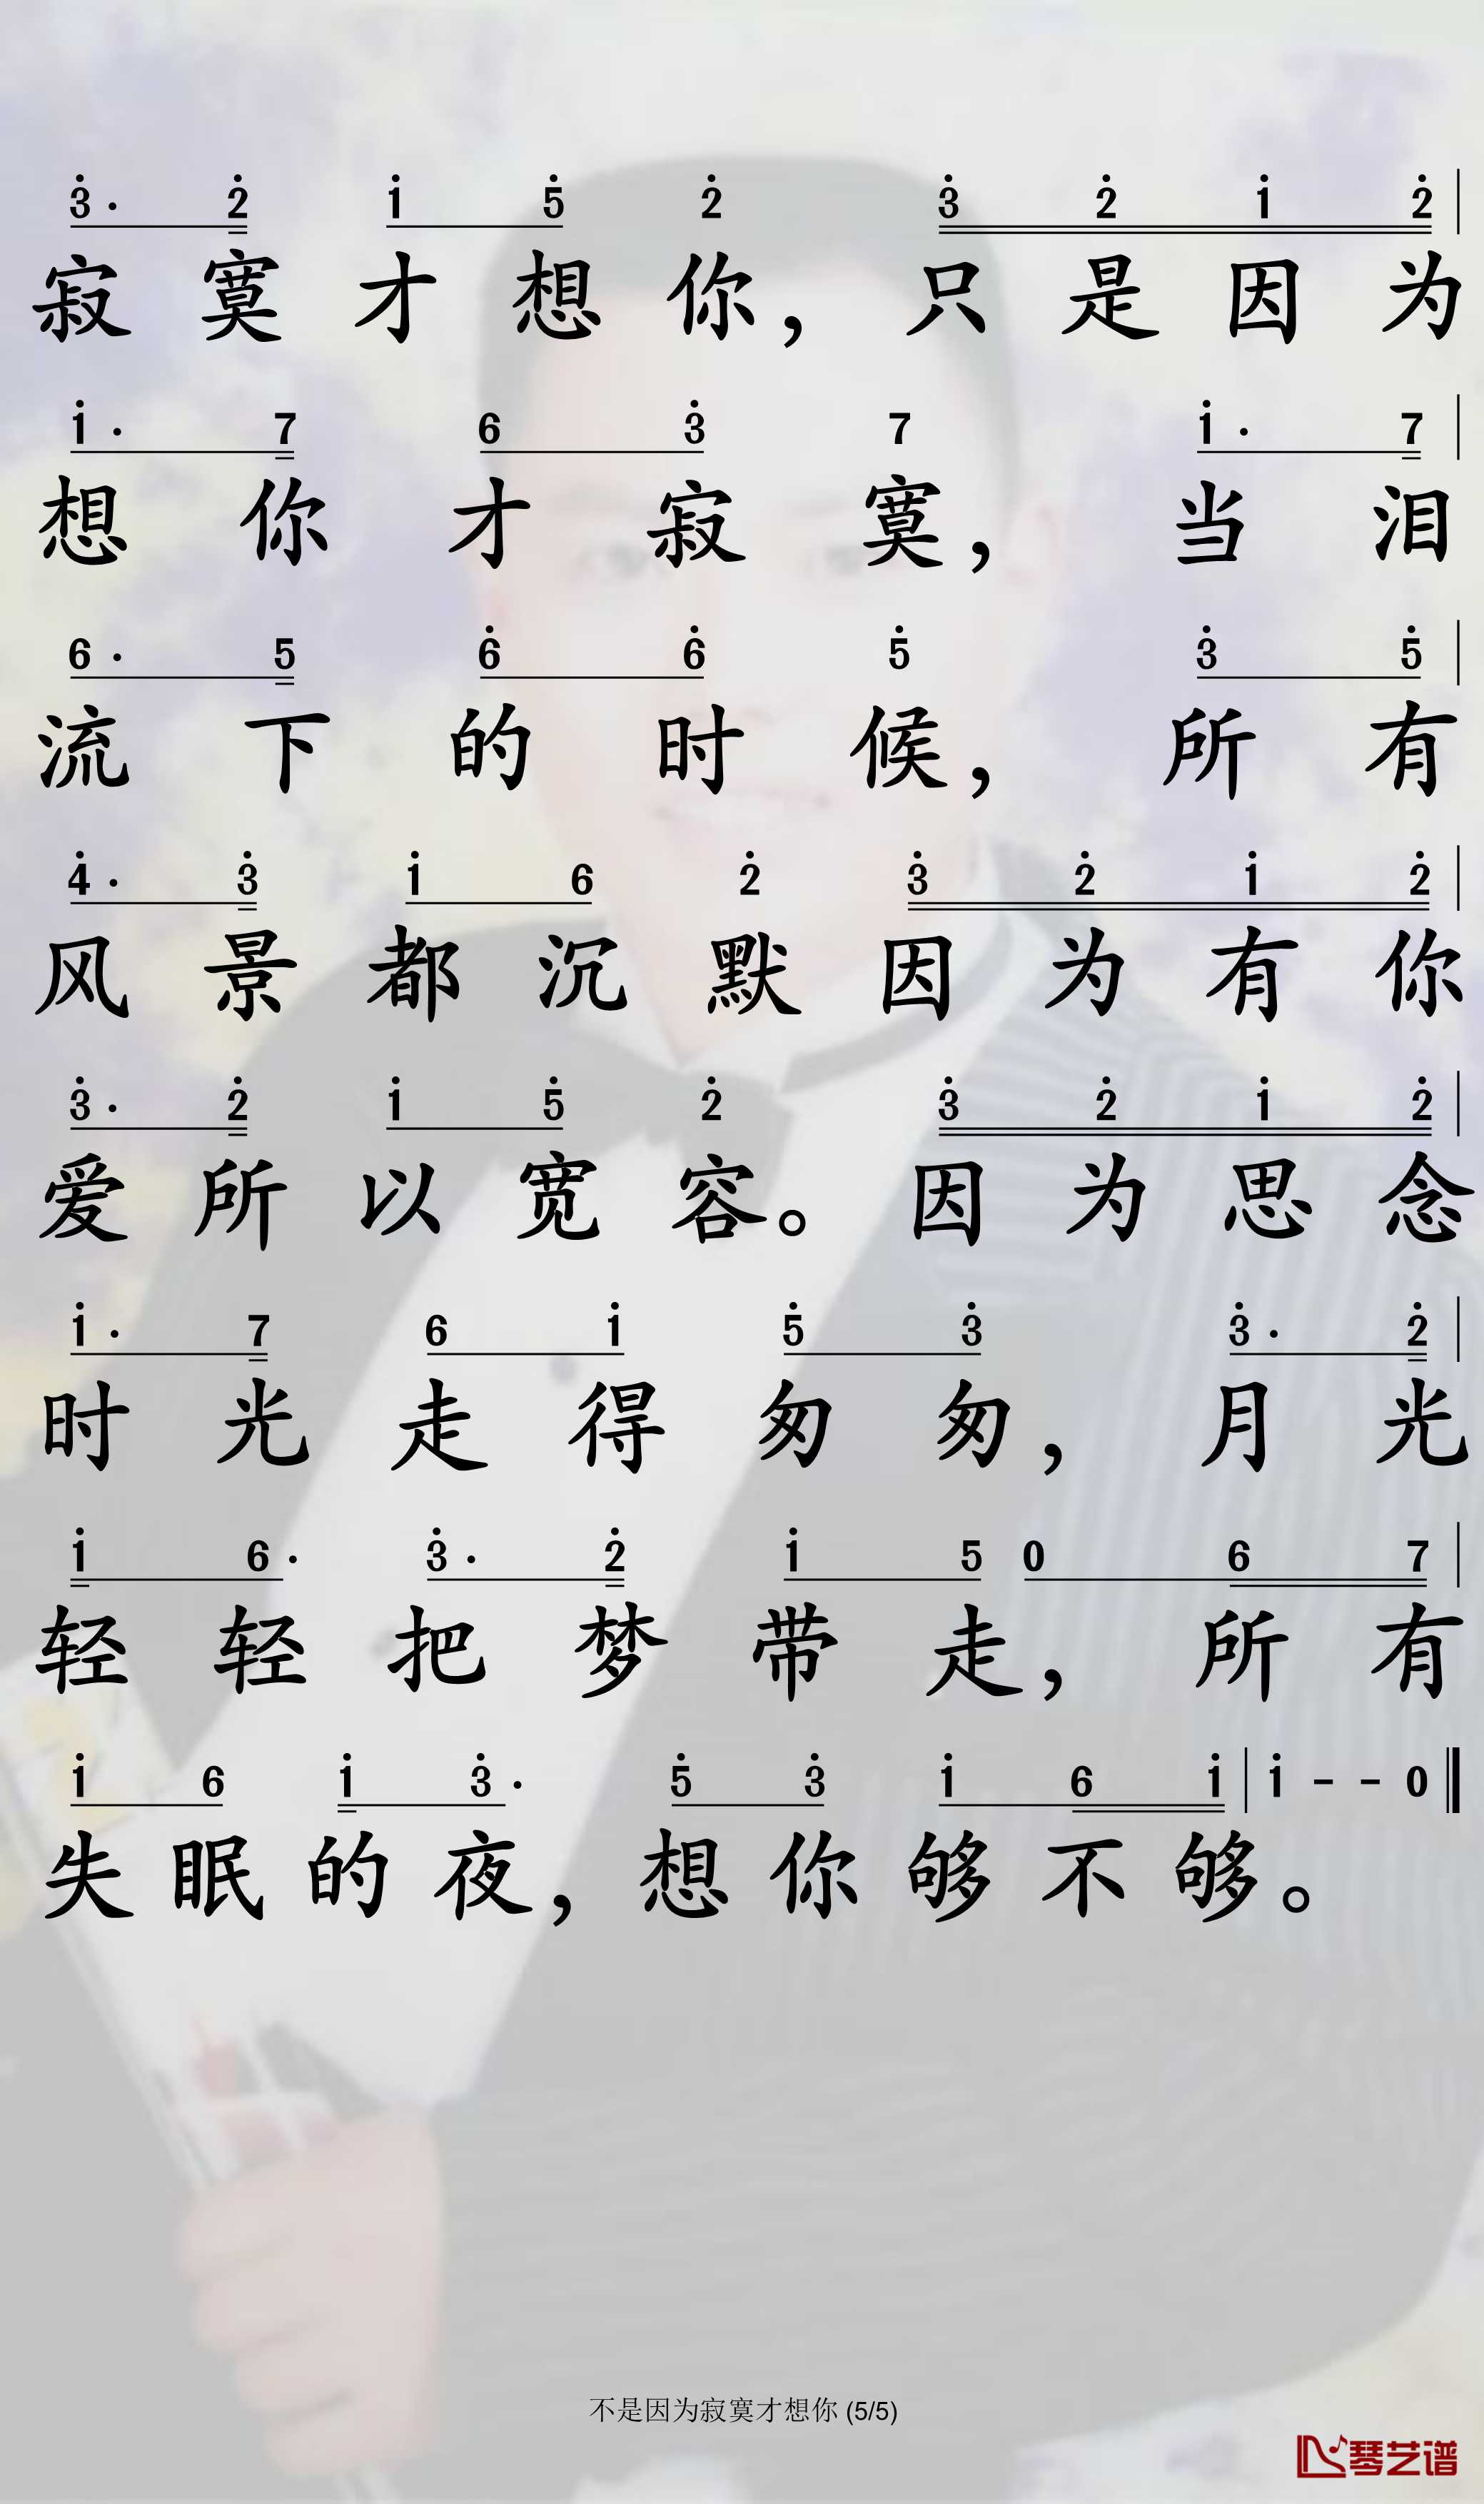 3̇· 2̇ 1̇ 5̇ 2̇ 3̇ 2̇ 1̇ 2̇ |
寂寞才想你，只是因为
1̇· 7 6 3̇ 7 1̇· 7 |
想你才寂寞，当泪
6· 5 6̇ 6̇ 5̇ 3̇ 5̇ |
流下的时候，所有
4̇· 3̇ 1̇ 6 2̇ 3̇ 2̇ 1̇ 2̇ |
风景都沉默因为有你
3̇· 2̇ 1̇ 5̇ 2̇ 3̇ 2̇ 1̇ 2̇ |
爱所以宽容。因为思念
1̇· 7 6 1̇ 5̇ 3̇ 3̇· 2̇ |
时光走得匆匆，月光
1̇ 6· 3̇· 2̇ 1̇ 5 0 6 7 |
轻轻把梦带走，所有
1̇ 6 1̇ 3̇· 5̇ 3̇ 1̇ 6 1̇ | 1̇ - - 0 ‖
失眠的夜，想你够不够。
不是因为寂寞才想你 (5/5)
琴艺谱